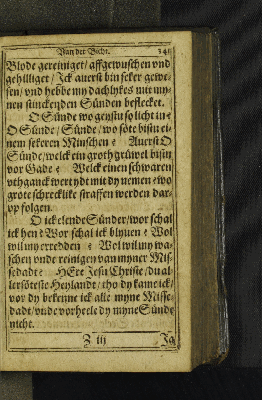 Van der Bicht. 341
Blode gereiniget / affgewuschen vnd
gehilliget / Ick auerst bin seker gewe-
sen / vnd hebbe my dachlykes mit my-
nen stinckenden Sünden beflecket.
O Sünde wo geystu so licht in:
O Sünde / Sünde / wo söte bistu ei-
nem sekeren Minschen? Auerst O
Sünde / welck ein groth grüwel bistu
vor Gade? Welck einen schwaren
vthganck wert ydt mit dy nemen? wo
grote schrecklike straffen werden dar-
vp folgen.
O ick elende Sünder / wor schal
ick hen? Wor schal ick blyuen? Wol
wil my erredden? Wol wil my wa-
schen vnde reinigen van myner Mis-
sedadt? HEre Jesu Christe / du al-
lersöteste Heylandt / tho dy kame ick /
vor dy bekenne ick alle myne Misse-
dadt / vnde vorheele dy myne Sünde
nicht.
Z iij Ja